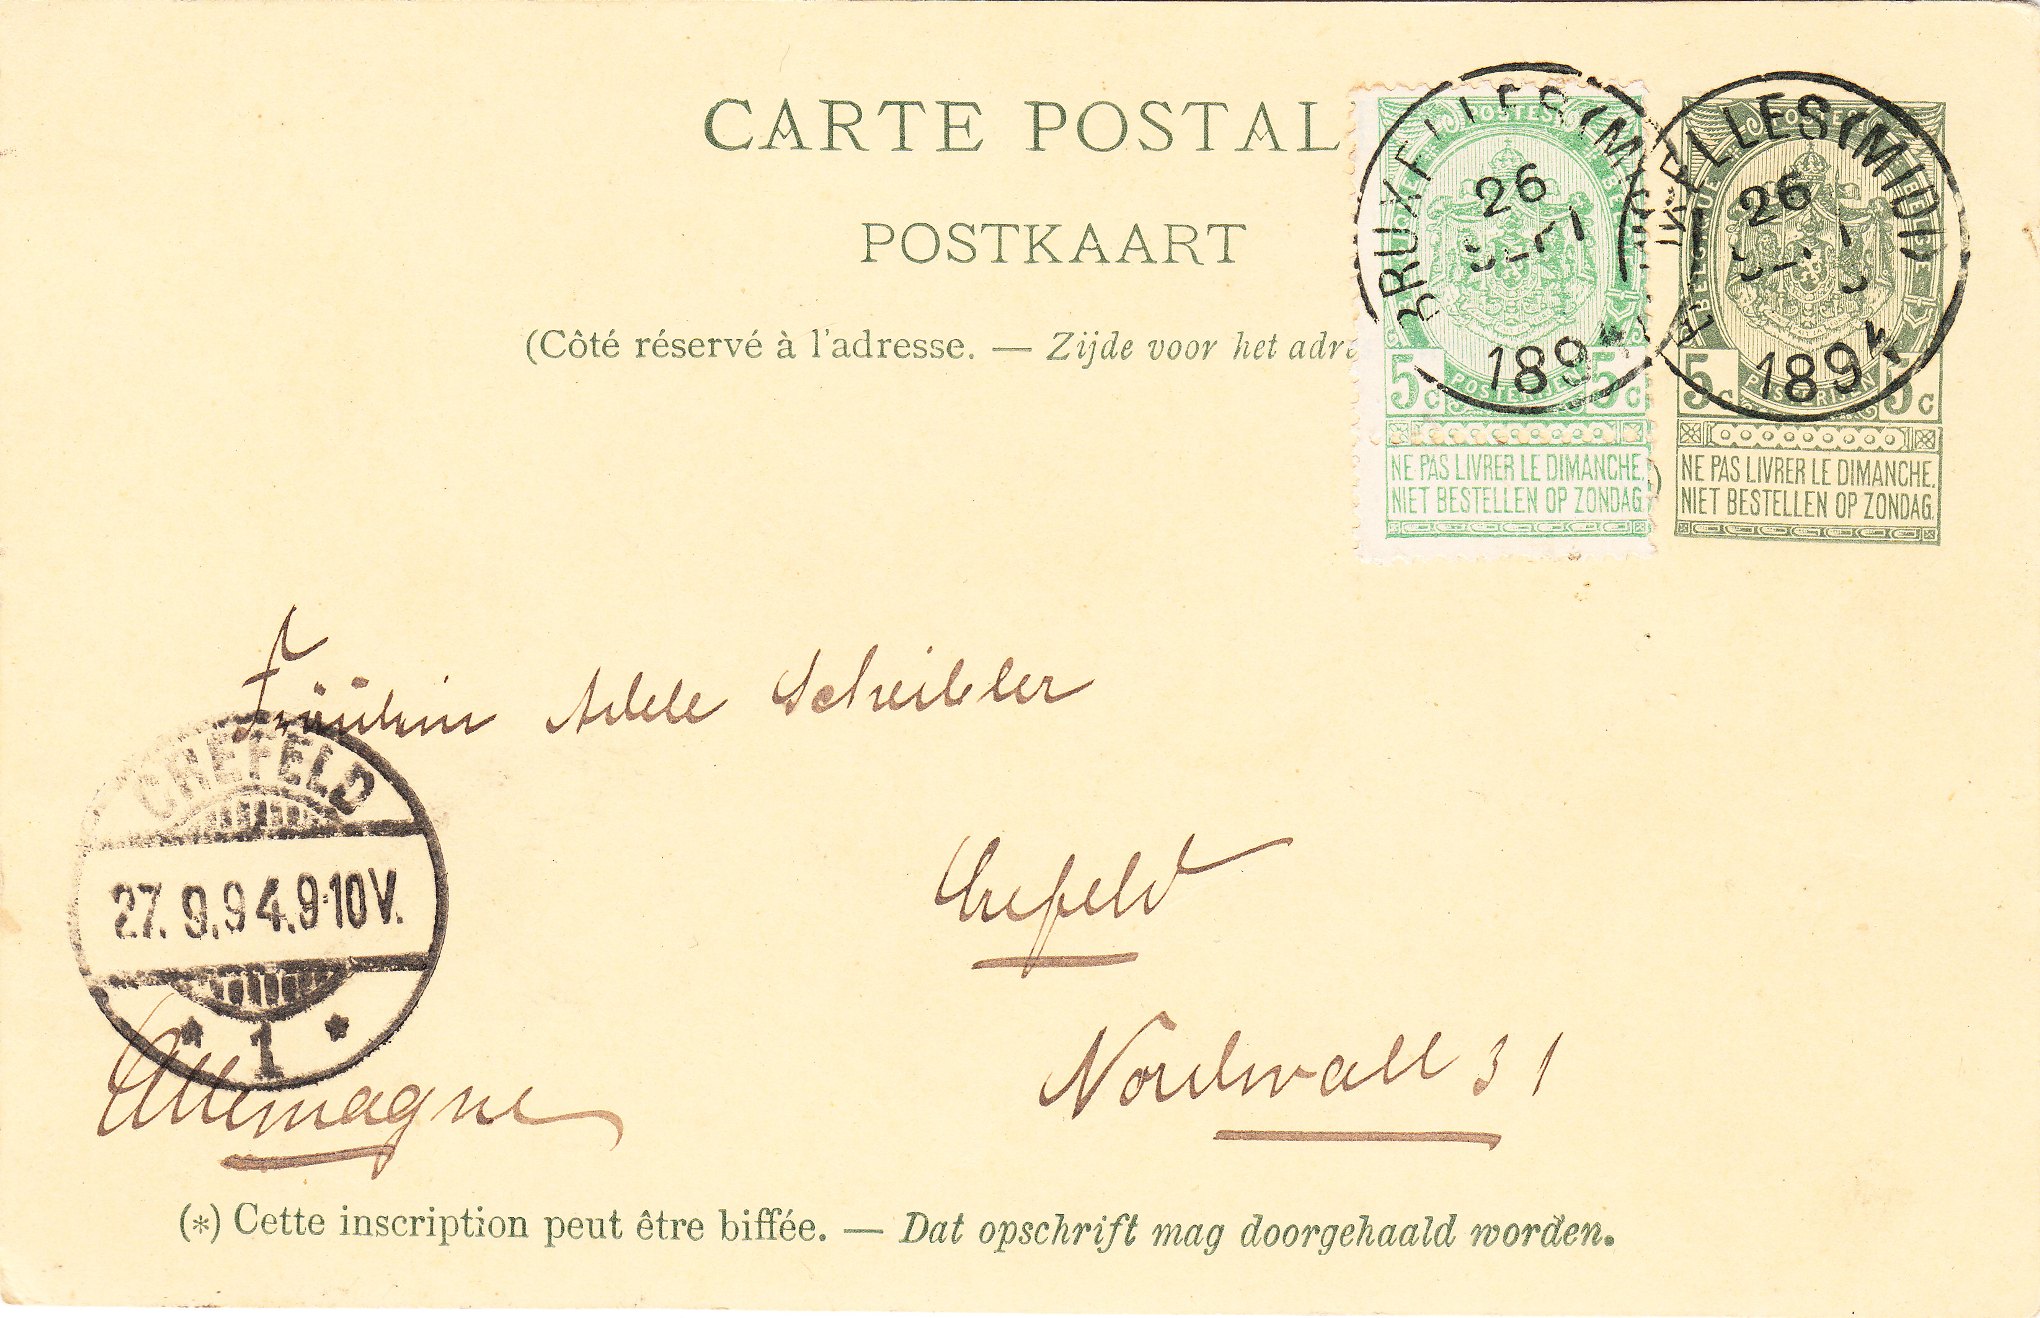 CARTE POSTAL
POSTKAART
(Côté réservé à l'adresse. — Zijde voor het adre
POSTES
BELGIQUE BELGIE
5c 5c
POSTERIJEN
NE PAS LIVRER LE DIMANCHE.
NIET BESTELLEN OP ZONDAG.
POSTES
BELGIQUE BELGIE
5c 5c
POSTERIJEN
NE PAS LIVRER LE DIMANCHE.
NIET BESTELLEN OP ZONDAG.
BRUXELLES (MI
26
SEPT
1894
BRUXELLES (MIDI)
26
1894
Fräulein Adele Scheibler
CREFELD
27.9.94.9-10V.
* 1 *
Crefeld
Nordwall 31
Allemagne
(*) Cette inscription peut être biffée. — Dat opschrift mag doorgehaald worden.